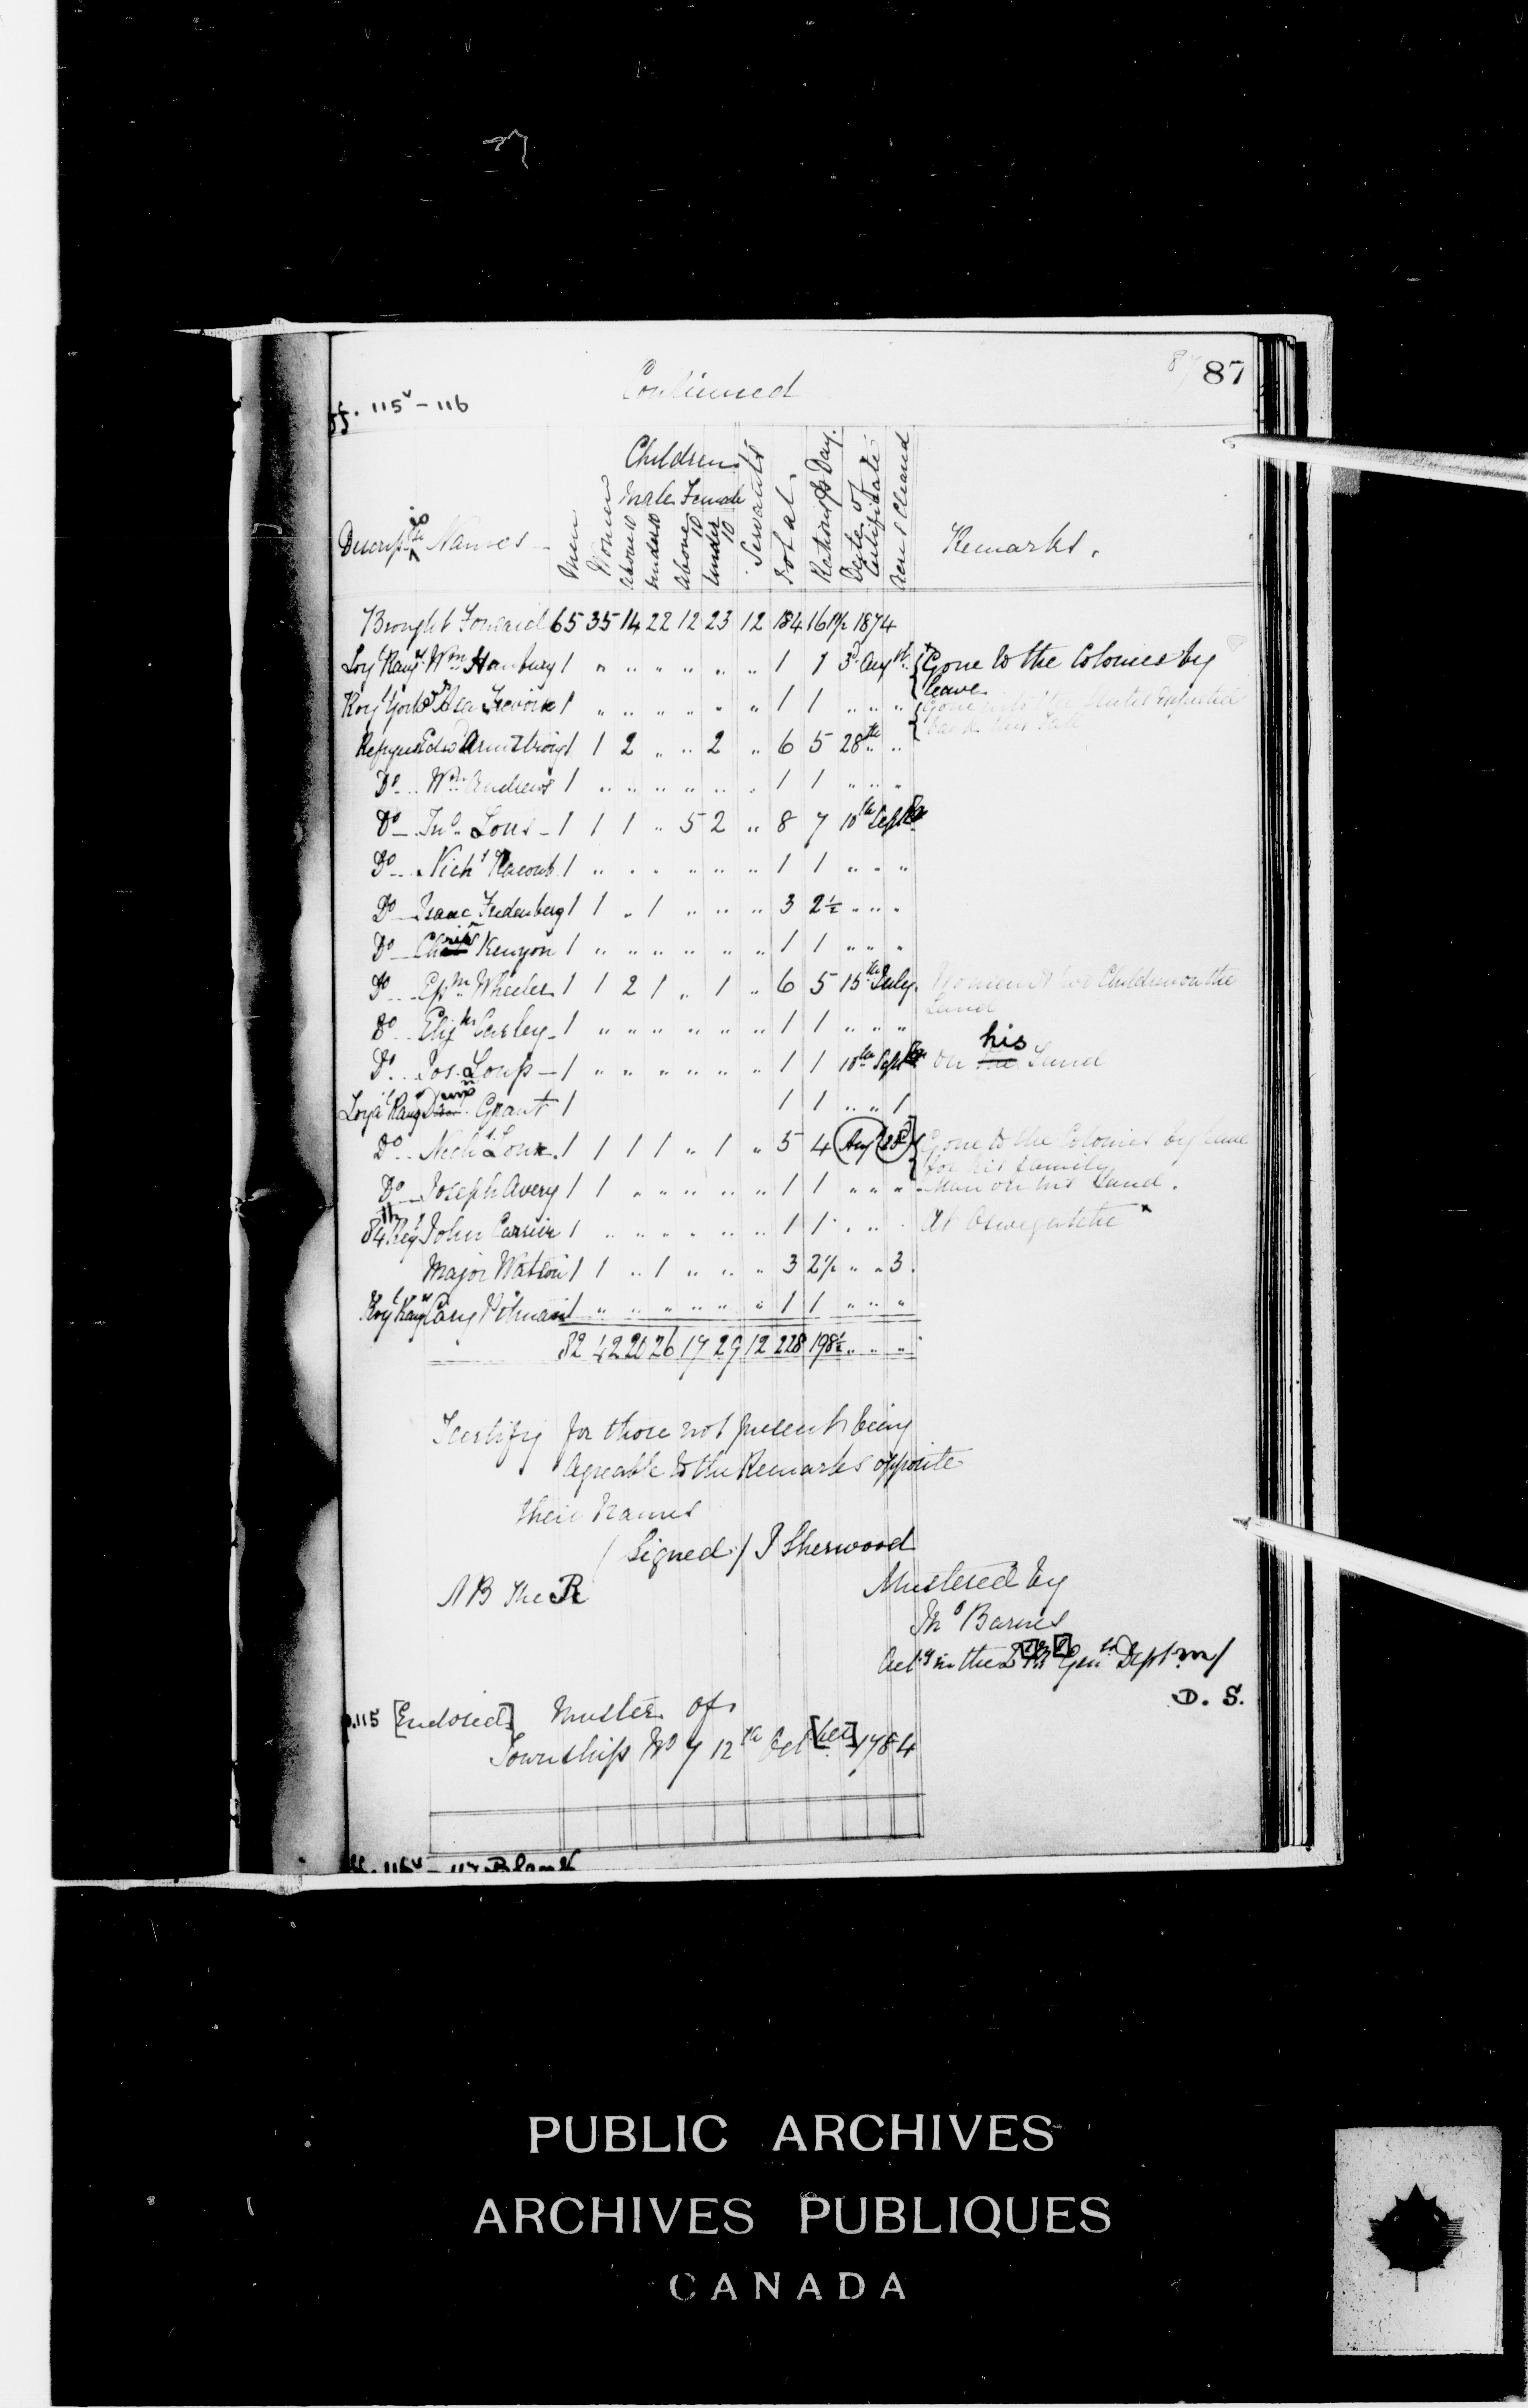 87
Continued
ff. 115v - 116
Children
Male Female
Descriptio Names Men Women above 10 under 10 above 10 under 10 Servants Total Rations pr Day. Date of Certificate Acres Cleard Remarks.
Brought Forward 65 35 14 22 12 23 12 184 161½ 1874
Loyl Rangrs Wm Hanbury 1 " " " " " " 1 1 3d Augst " Gone to the Colonies by
leave
Roy Yorkrs Asa 1 " " " " " " 1 1 " " " Gone into the States Expected
back this Fall
Refugees Edwd Armstrong 1 1 2 " " 2 " 6 5 28th " "
Do Wm Andrews 1 " " " " " " 1 1 " " "
Do Jno Lous 1 1 1 " 5 2 " 8 7 10th Septr
Do Nichs 1 " " " " " " 1 1 " " "
Do Isaac Fredenberg 1 1 " 1 " " " 3 2½ " " "
Do Chris Kenyon 1 " " " " " " 1 1 " " "
Do Epm Wheeler 1 1 2 1 " 1 " 6 5 15th July. Women & two Children on the
Land
Do Elijh Curley 1 " " " " " " 1 1 " " "
Do Jos. Loup 1 " " " " " " 1 1 10th Septr on the his Land
Loyal Rangs Grant 1 1 1 " " 1
Do Nichs Loux. 1 1 1 1 " 1 " 5 4 Aug 28d Gone to the Colonies by leave
for his family
Do Joseph Avery 1 1 " " " " " 1 1 " " " Man on his Land.
84th Reg John Carrier 1 " " " " " " 1 1 " " " At Oswegatchie
Major Watson 1 1 " 1 " " " 3 2½ " " 3.
Roy Rangrs Cary Pitman 1 " " " " " " 1 1 " " "
82 42 20 26 17 29 12 228 198½ " " "
I certify for those not present being
agreable to the Remarks opposite
their Names
(Signed) J Sherwood
NB The R
Mustered by
Ths Barnes
Actg in the Genls Deptm/
D. S.
p.115 [Endorsed] Muster of
Township No 7 12th Oct[ber] 1784
ff. 116v - 117 Blank
PUBLIC ARCHIVES
ARCHIVES PUBLIQUES
CANADA